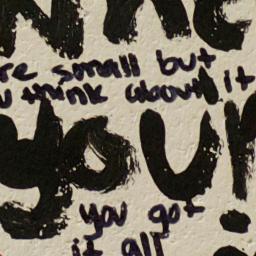 re small but
u think about it
you!
you got
it all